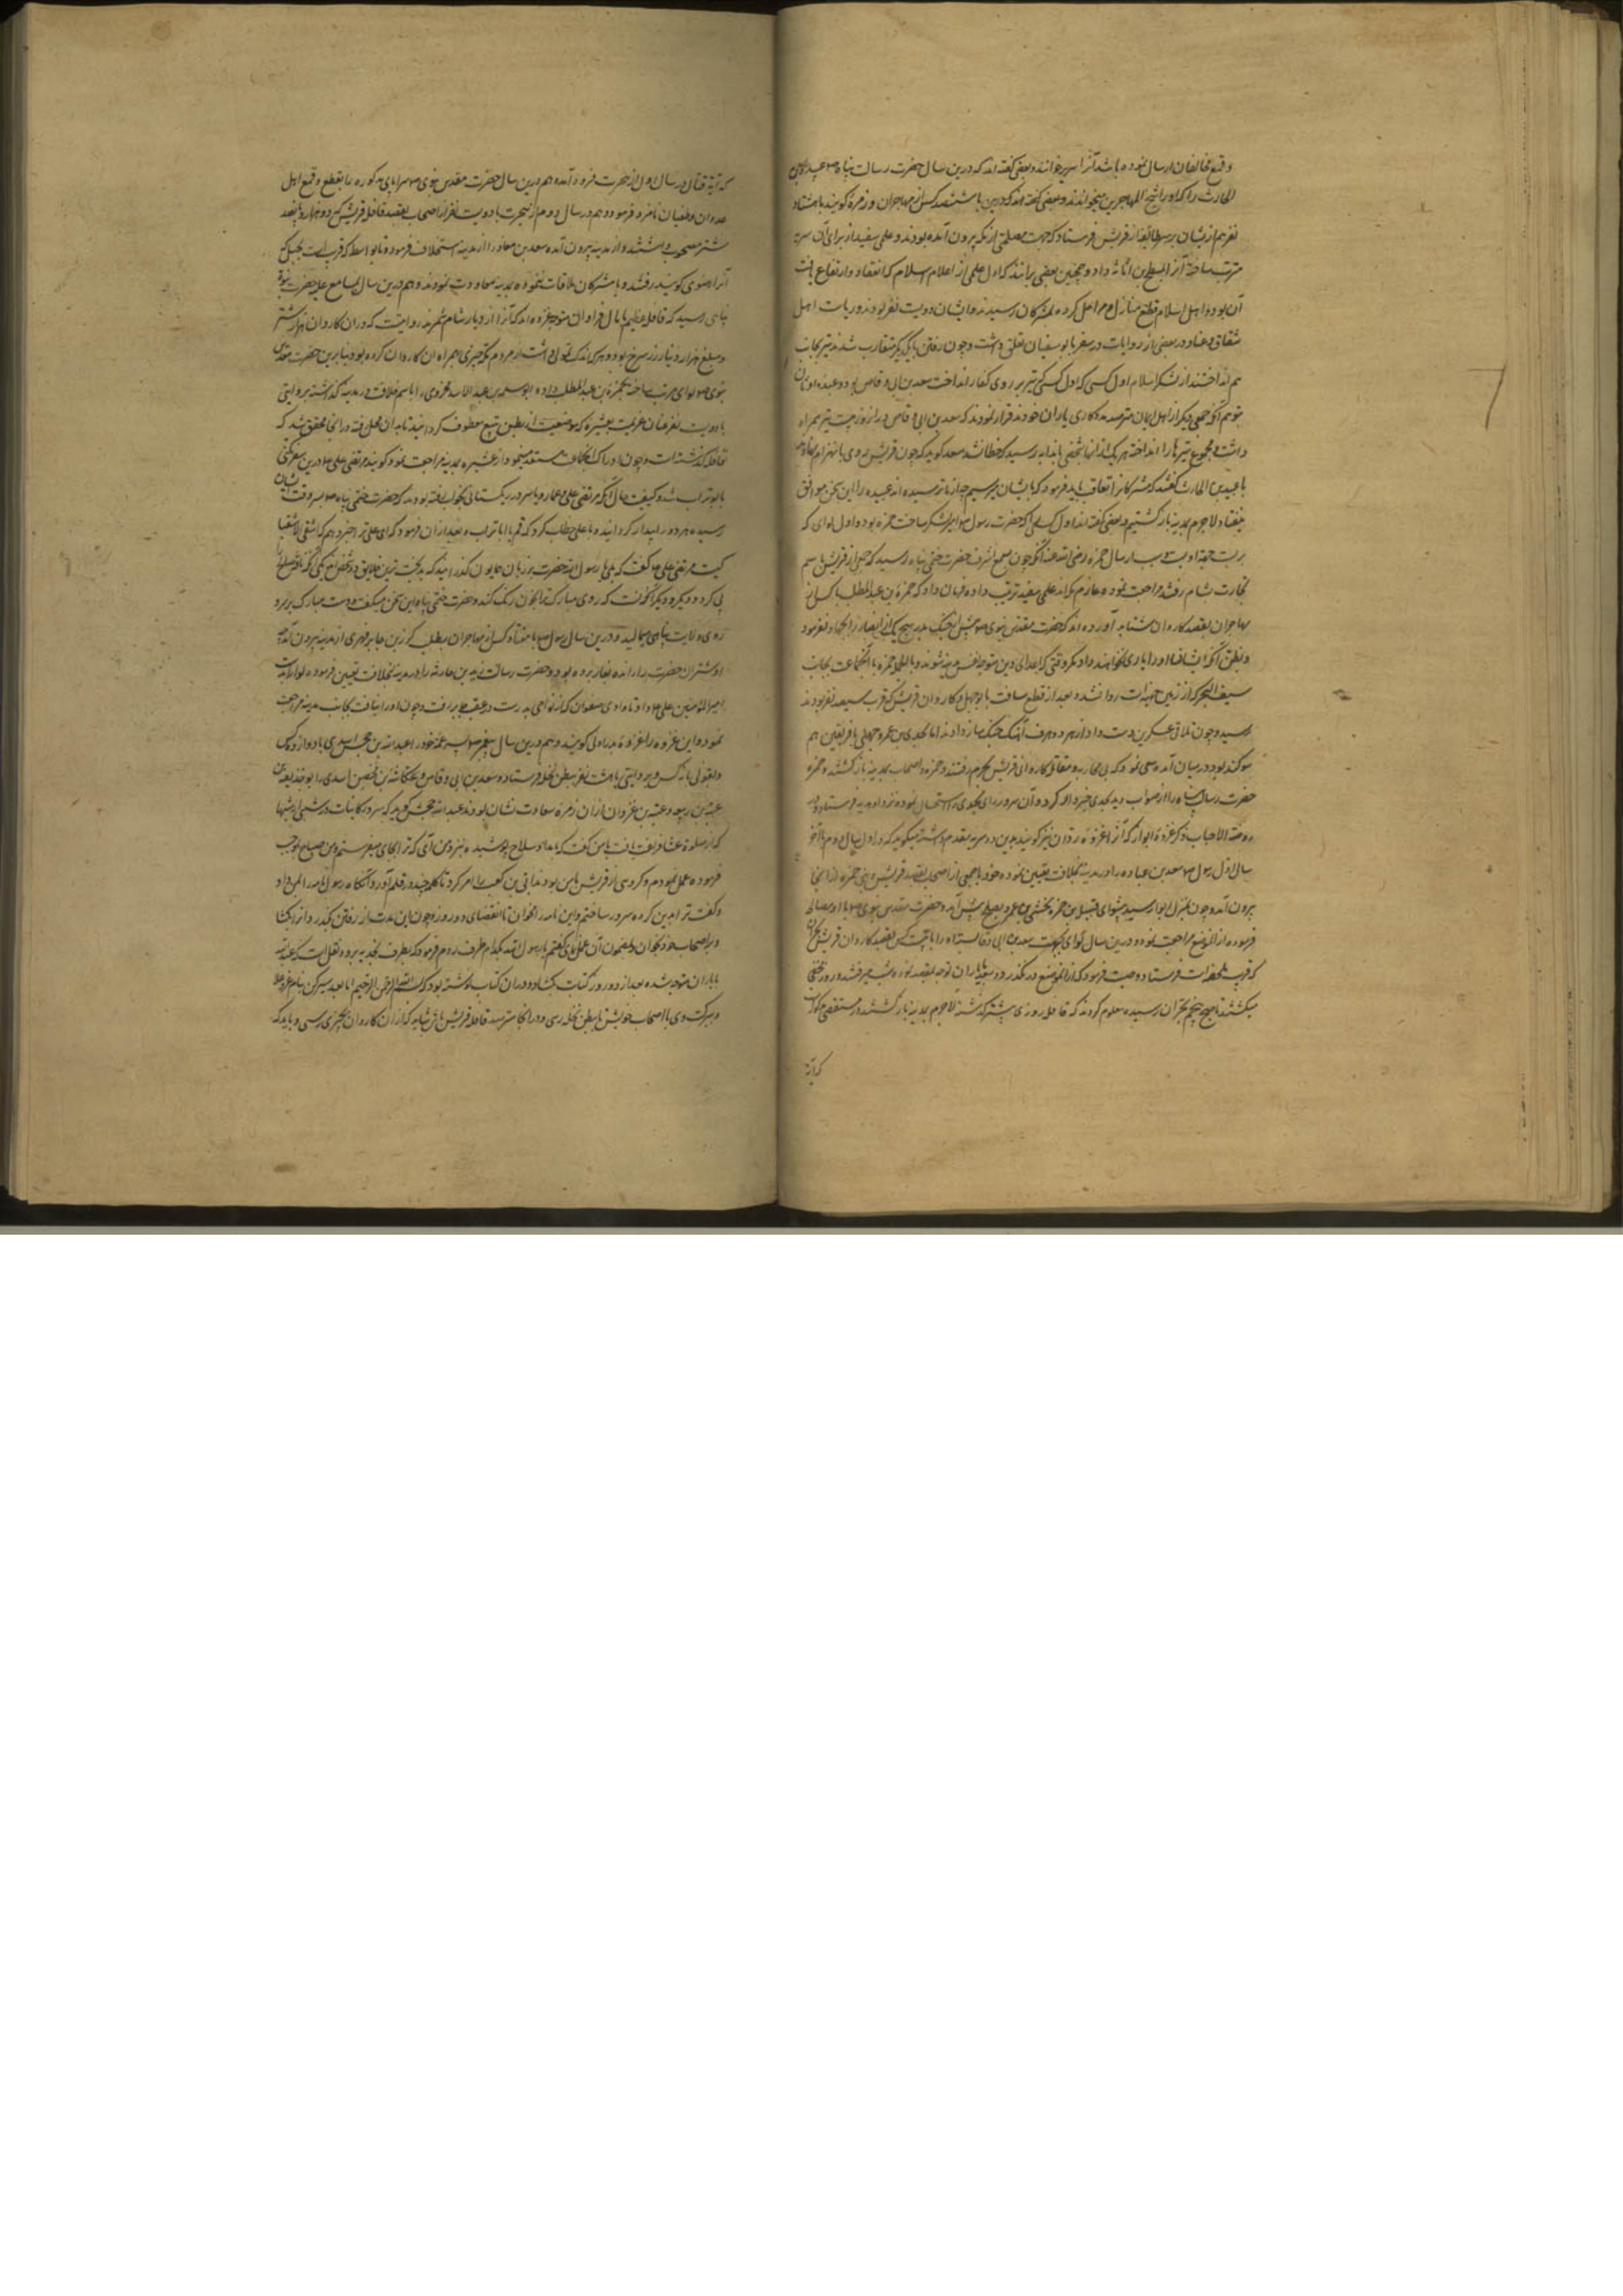 و قمع مخالفان ارسال نموده باشد آنرا سریه خوانند و بعضی گفته‌اند که درین سال حضرت رسالت پناه صم عبیدة بن
الحارث را که او را شیخ المهاجرین میخواندند و بعضی گفته‌اند که درین با شصت کس از مهاجران و زمرهٔ گویند با هشتاد
نفر هم ازیشان بر سر طایفهٔ از قریش فرستاد که جهت مصلحتی از مکه بیرون آمده بودند و علمی سفید از برای آن سریه
مرتب ساخته آنرا بمسطح بن اثاثه داد و همچنین بعضی برآنند که اول علمی از اعلام اسلام که انعقاد و ارتفاع یافت
آن بود و اهل اسلام قطع منازل و مراحل کرده بمشرکان رسیدند و ایشان دویست نفر بودند و ریاست اهل
شقاق و عناد در بعضی از روایات در سفر بابو سفیان تعلق داشت و چون رفتن بیکدیگر متقارب شدند تیر بجانب
هم انداختند از لشکر اسلام اول کسی که اول کسی که تیر بر روی کفار انداخت سعد بن ابی وقاص بود و عبیده
بتوهم آنکه جمعی دیگر از اهل ایمان مترصد مددکاری یاران خود ند قرار نمودند که سعد بن ابی وقاص در آنروز بیست تیر همراه
داشت و مجموع تیرها را انداخته هر یک ازانها بشخصی یا بدابه رسید که خطا نشد سعد گوید که چون قریش روی بانهزام نهادند
با عبیدة بن الحارث گفتم که مشرکانرا تعاقب باید فرمود که بایشان برسیم چه از ما ترسیده‌اند عبیده را این سخن موافق
نیفتاد لاجرم بمدینه بازگشتیم و بعضی گفته‌اند اول کسی را که حضرت رسول صم امیر لشکر ساخت حمزه بود و اول لوای که
بربست بجهة او بست و سبب ارسال حمزه رضی الله عنه آنکه چون بسمع اشرف حضرت ختمی پناه رسید که جمعی از قریش باسم
تجارت شام رفته مراجعت نموده عازم مکه‌اند علمی سفید ترتیب داده فرمان داد که حمزة بن عبدالمطلب با کس از
مهاجران بقصد کاروان بشتابد آورده‌اند که حضرت مقدس نبوی صم پیش از جنگ بدر هیچ یکی از انصار را بجهاد نفرمود
و بظن آنکه ایشان او را یاری نخواهند داد مگر وقتی که اعدای دین متوجه مدینه شوند و بالجمله حمزه با آنجماعت بجانب
سیف البحر که از زمین جهینه است روان شد و بعد از قطع مسافت بابو جهل و کاروان قریش که قریب سیصد نفر بودند
رسید و چون تلاقی عسکرین دست داد از هر دو طرف آهنگ جنگ ساز دادند اما مجدی بن عمرو جهنی با فریقین هم
سوگند بود در میان آمده سعی نمود که بی محاربه و مقاتله کاروانی قریش بحرم رفتند و حمزه و اصحاب بمدینه بازگشتند و حمزه
حضرت رسالت پناه را از صوابدید مجدی خبر داد
روضة الاحباب ذکر غزوهٔ ابوا که آنرا غزوهٔ ودان نیز گویند بدین دو سریه مقدم داشته میگوید که در اول سال دوم یا آخر
سال اول رسول صم سعد بن عباده را در مدینه بخلافت تعیین نموده خود با جمعی از اصحاب بقصد قریش و بنی ضمره از آنجا
بیرون آمد و چون بمنزل ابوا رسید پیشوای قبیلهٔ بنی ضمره مخشی بن عمرو بصلح پیش آمد و حضرت مقدس نبوی صم با او مصالحه
فرموده از آن موضع مراجعت نمود و درین سال لوای بجهت سعد بن ابی وقاص بسته او را با بیست کس بقصد کاروان قریش
که قریب بجحفه است فرستاد و وصیت فرمود که از آن موضع در نگذرد و سعد با یاران توجه بمقصد نموده شب میرفتند و روز مختفی
میگشتند تا صبح پنجم بخرار رسیده معلوم کردند که قافله روزی پیشتر گذشته لاجرم بمدینه بازگشتند در مستقصی مذکور است
که آیة
که آیة قتال در سال اول از هجرت فرود آمده هم درین سال حضرت مقدس نبوی صم سرایای مذکوره را بقطع و قمع اهل
عدوان و طغیان نامزد فرمود و هم در سال دوم از هجرت با دویست نفر از اصحاب بقصد قافلهٔ قریش که دو هزار و پانصد
شتر مصحوب داشتند از مدینه بیرون آمده سعد بن معاذ را در مدینه استخلاف فرمود و تا بواط که قریب است بجبلی که
آنرا رضوی گویند رفتند و با مشرکان ملاقات ننموده بمدینه معاودت نمودند و هم درین سال بمسامع علیه حضرت نبوت
پناهی رسید که قافلهٔ عظیم با مال فراوان متوجه غزه‌اند که آنرا از دیار شام شمرند روایتست که در آن کاروان هزار شتر
و مبلغ هزار دینار زر سرخ بود و هر که اندک تمولی داشت از مردم مکه چیزی همراه آن کاروان کرده بود بنابرین حضرت مقدس
نبوی صم لوای مرتب ساخته بحمزة بن عبدالمطلب داده ابو سلمة بن عبدالاسد مخزومی را باسم خلافت در مدینه گذاشته بروایتی
با دویست نفر عنان عزیمت بعشیره که موضعیست از بطن ینبع معطوف گردانید تا بدان محل رفته در آنجا محقق شد که
قافله گذشته است و چون ادراک آنجماعت مستبعد مینمود از عشیره بمدینه مراجعت نمود گویند مرتضی علی ع درین سفر مکنی
بابو تراب شد و کیفیت حال آنکه مرتضی علی و عمار یاسر در ریگستانی بخواب رفته بودند که حضرت ختمی پناه صم بسروقت ایشان
رسیده هر دو را بیدار گردانید و با علی خطاب کرد که قم یا ابا تراب و بعد از آن فرمود که ای علی ترا خبر دهم که اشقی الاشقیا
کیست مرتضی علی ع گفت که بلی یا رسول الله حضرت بر زبان همایون گذرانید که بدبخت ترین خلایق دو شخص‌اند یکی آنکه ناقه صالح را
پی کرد و دیگر آنکسست که روی مبارک ترا بخون رنگ کند و حضرت ختمی پناه این سخن میگفت و دست مبارک بر سر و
روی ولایت پناهی میمالید و درین سال رسول صم با هفتاد کس از مهاجران بطلب کرز بن جابر فهری از مدینه بیرون آمد
و شتران حضرت را رانده بغارت برده بود و حضرت رسالت زید بن حارثه را در مدینه بخلافت تعیین فرموده لوا را بدست
امیر المؤمنین علی ع داد و تا وادی صفوان که از نواحی بدر است در عقب جابر رفت و چون او را نیافت بجانب مدینه مراجعت
نمود و این غزوه را غزوهٔ بدر اولی گویند و هم درین سال پیغمبر صم پسر عمهٔ خود را عبدالله بن جحش اسدی با دوازده کس
و بقولی یازده کس و بروایتی با هشت نفر ببطن نخله فرستاد و سعد بن ابی وقاص و عکاشة بن محصن اسدی و ابو حذیفة بن
عتبة بن ربیعه و عتبة بن غزوان از آن زمرهٔ سعادت نشان بودند عبدالله جحش گوید که سرور کاینات در شبی از شبها
که از صلوة عشا فراغت یافت با من گفت که بامداد سلاح پوشیده بنزد من آی که ترا بجای میفرستم و من صباح بموجب
فرموده عمل نمودم و گروهی از قریش با من بودند ابی بن کعب را امر کرد تا کلمهٔ چند در قلم آورد و آنگاه رسول نامه را بمن داد
و گفت ترا بدین گروه سرور ساختم و این نامه را مخوان تا انقضای دو روز و چون این مدت از رفتن بگذرد آنرا بگشا
و بر اصحاب خود بخوان و بمضمون آن عمل نمای گفتم یا رسول الله بکدام طرف روم فرمود که بطرف نجدیه برو و نقلست که عبدالله
با یاران متوجه شده بعد از دو روز کتابت بگشاد و در آن کتاب نوشته بود که بسم الله الرحمن الرحیم اما بعد سیر کن بنام خدای عز و علا
و ببرکت وی با اصحاب خویش تا ببطن نخله رسی و در آنجا مترصد قافلهٔ قریش باش شاید که از آن کاروان بخیری رسی و باید که